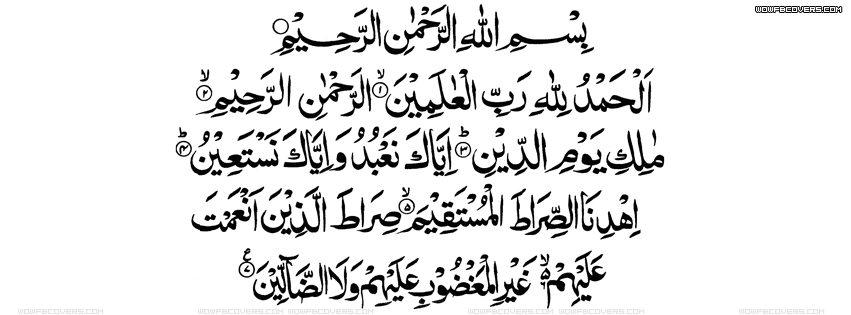 WOWFBCOVERS.COM
بِسْمِ اللهِ الرَّحْمٰنِ الرَّحِيْمِ
اَلْحَمْدُ لِلّٰهِ رَبِّ الْعٰلَمِيْنَ ۙ﴿۱﴾ الرَّحْمٰنِ الرَّحِيْمِ ۙ﴿۲﴾
مٰلِكِ يَوْمِ الدِّيْنِ ؕ﴿۳﴾ اِيَّاكَ نَعْبُدُ وَاِيَّاكَ نَسْتَعِيْنُ ؕ﴿۴﴾
اِهْدِنَا الصِّرَاطَ الْمُسْتَقِيْمَ ۙ﴿۵﴾ صِرَاطَ الَّذِيْنَ اَنْعَمْتَ
عَلَيْهِمْ ۙ۬ غَيْرِ الْمَغْضُوْبِ عَلَيْهِمْ وَلَا الضَّآلِّيْنَ ﴿۷﴾
WOWFBCOVERS.COM WOWFBCOVERS.COM WOWFBCOVERS.COM WOWFBCOVERS.COM WOWFBCOVERS.COM